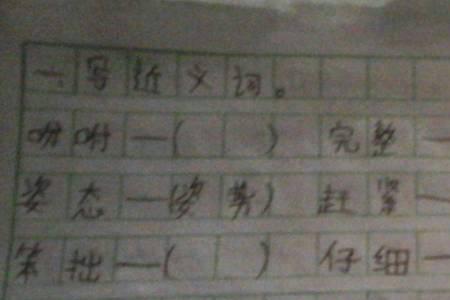 一、写近义词。
吩咐—( ) 完整—
姿态—(姿势) 赶紧—
笨拙—( ) 仔细—